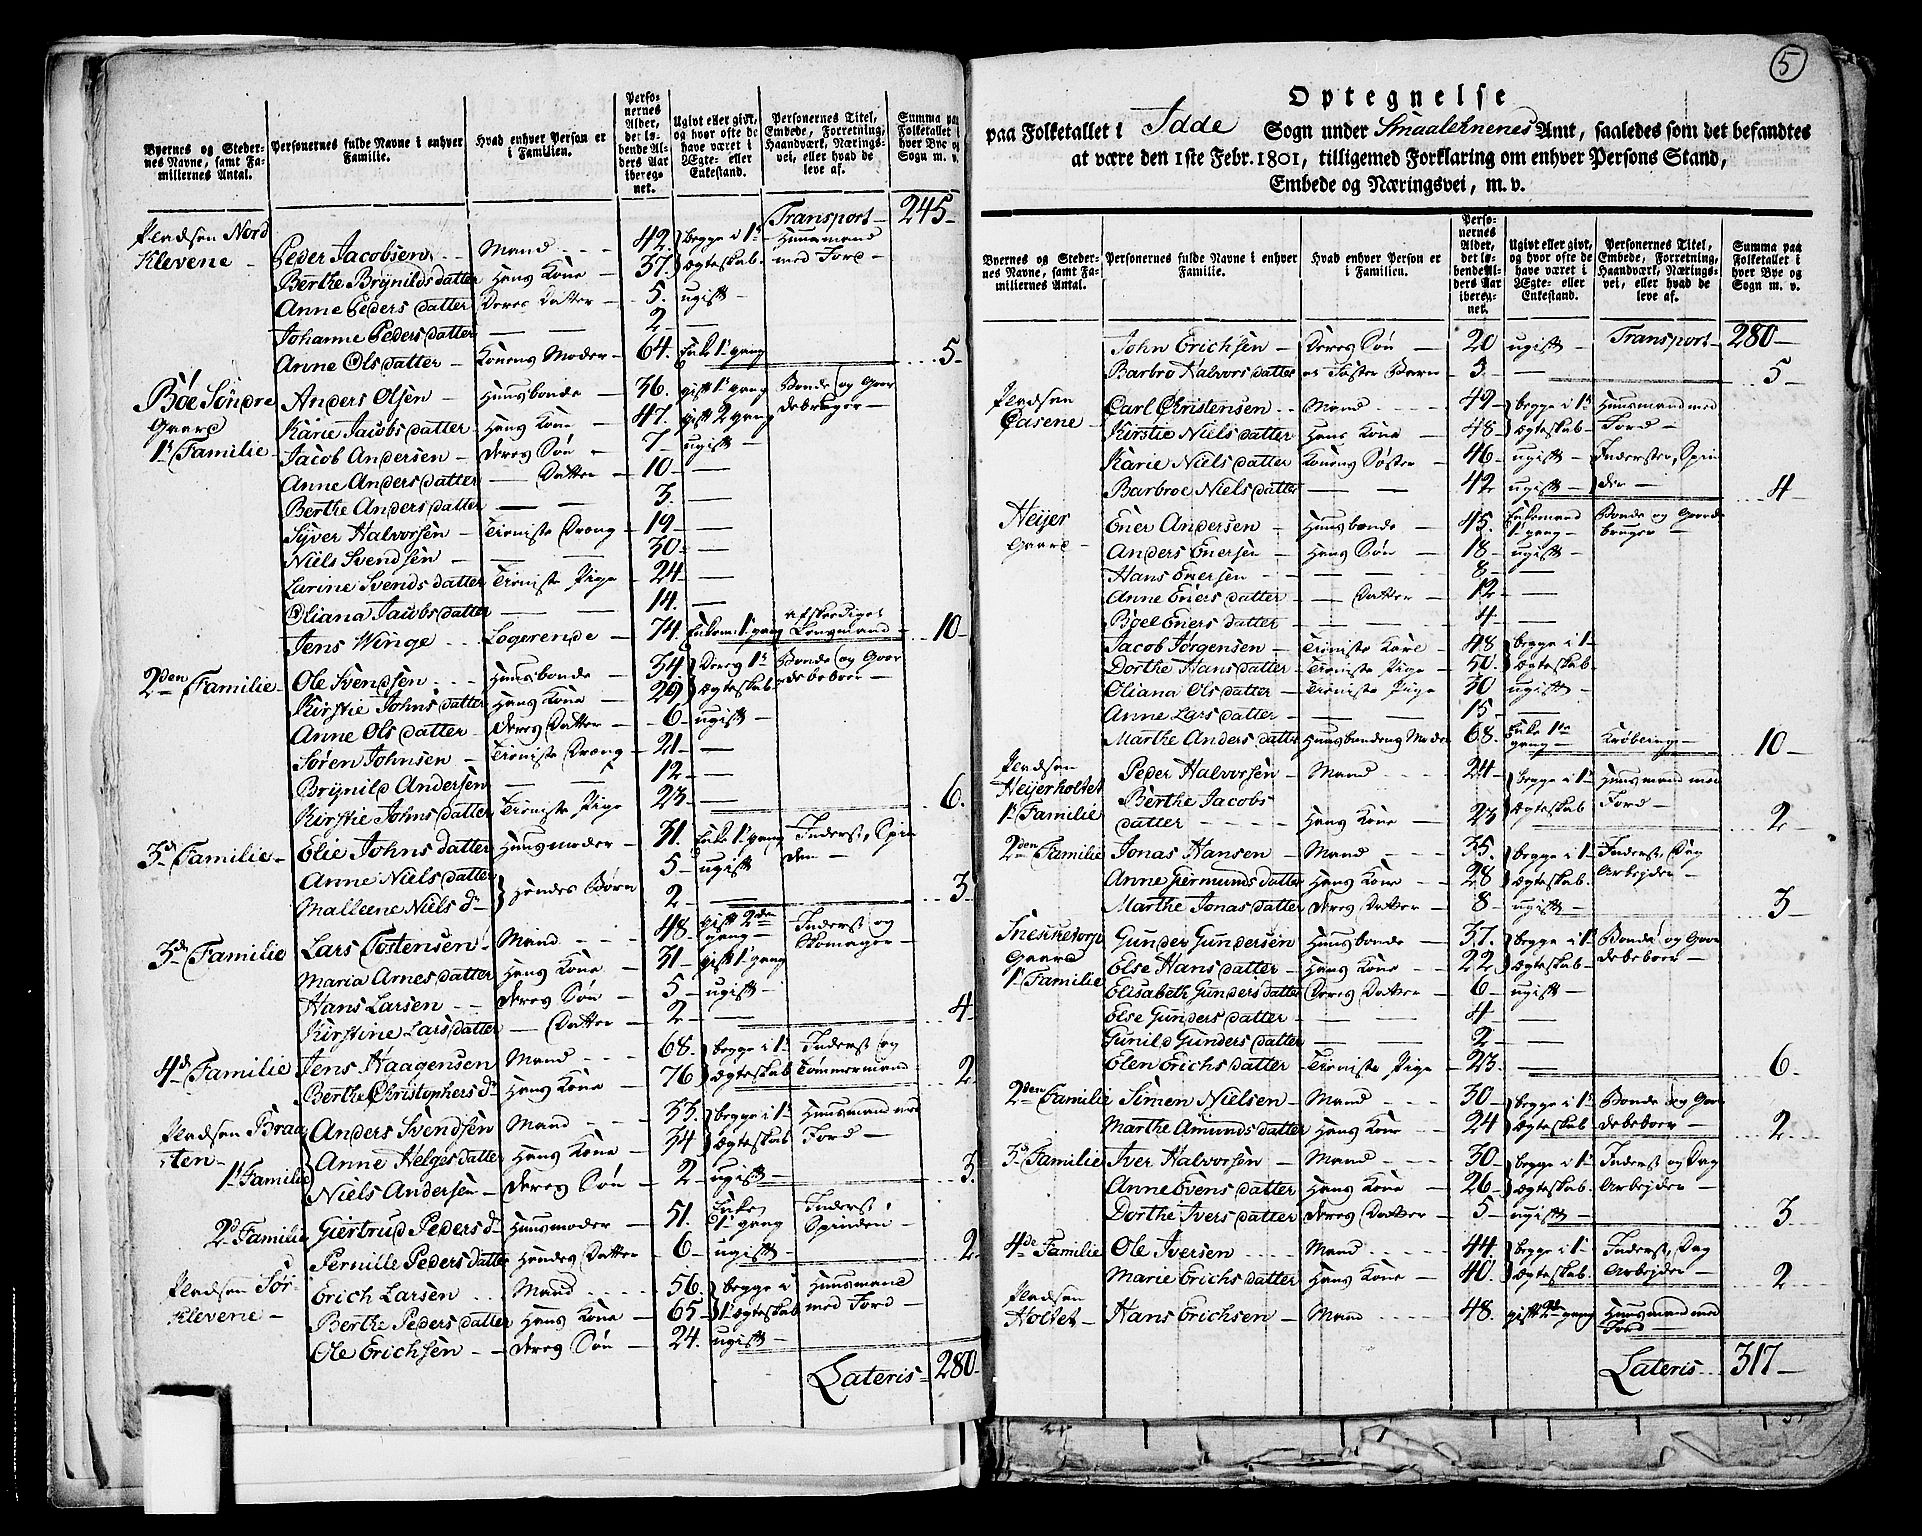 Byernes og Stedernes Navne, samt Familiernes Antal.
Personernes fulde Navne i enhver Familie.
Hvad enhver Person er i Familien.
Personernes Alder, det løbende Alders Aar iberegnet.
Ugivt eller givt, og hvor ofte de have været i Ægte- eller Enkestand.
Personernes Titel, Embede, Forretning, Haandværk, Næringsvei, eller hvad de leve af.
Summa paa Folketallet i hver Bye og Sogn m. v.
Transport 245
Pladsen Nord Peder Jacobsen Mand 42. begge i 1te Huusmand
Klevene Berthe Brynilds datter Hans Kone 37. ægteskab med Jord
Anne Peders datter Deres Datter 5. ugift
Johanne Peders datter — — 2 —
Anne Ols datter Konens Moder 64. Enke 1te gang 5
Böe Söndre Anders Olsen Huusbonde 36. gift 1te gang Bonde og Gaar
Gaard Karie Jacobs datter Hans Kone 47. gift 2 gang debruger
1te Familie Jacob Andersen Deres Søn 7 ugift
Anne Anders datter — Datter 10 —
Berthe Anders datter — — 3. —
Syver Halvorsen Tieniste Dreng 19 —
Niels Svendsen — — 30 —
Larine Svends datter Tieniste Pige 24 —
Oliana Jacobs datter — — 14. —
Jens Winge Logerende 74. Enkem: 1te gang afskediget Lensmand 10
2den Familie Ole Svendsen Huusbonde 34. Deres 1te Bonde og Gaar
Kirstie Johns datter Hans Kone 29 ægteskab debeboer
Anne Ols datter Deres Datter 6 ugift
Sören Johnsen Tieniste Dreng 21 —
Brynild Andersen — — 12 —
Kirstie Johns datter Tieniste Pige 23 — 6.
3de Familie Elie Johns datter Huusmoder 31. Enke 1te gang Inderst, Spin
Anne Niels datter Hendes Børn 5 ugift
Malleene Niels dr 2 — 3
3de Familie Lars Tostensen Mand 48. gift 2den gang Inderst og Skomager
Maria Arnes datter Hans Kone 31 gift 1te gang
Hans Larsen Deres Søn 5 ugift
Kirstine Lars datter — Datter 2 — 4
4de Familie Jens Haagensen Mand 68. begge i 1te Inderst og
Berthe Christophers dr Hans Kone 76 ægteskab Tømmermand 2
Pladsen Braa Anders Svendsen Mand 33. begge i 1te Huusmand med
ten Anne Helges datter Hans Kone 34 ægteskab Jord
1te Familie Niels Andersen Deres Søn 2 ugift 3.
2d Familie Giertrud Peders dr Huusmoder 51. Enke 1te gang Inderst
Pernille Peders datter Hendes Datter 6 ugift 2
Pladsen Sör Erich Larsen Mand 56. begge i Huusmand
Klevene Berthe Peders datter Hans Kone 65 1te ægteskab med Jord
Ole Erichsen Deres Søn 24. ugift
Lateris 280
5
Optegnelse
paa Folketallet i Idde Sogn under Smaalehnenes Amt, saaledes som det befandtes
at være den 1ste Febr. 1801, tilligemed Forklaring om enhver Persons Stand,
Embede og Næringsvei, m. v.
Byernes og Stedernes Navne, samt Familiernes Antal.
Personernes fulde Navne i enhver Familie.
Hvad enhver Person er i Familien.
Personernes Alder, det løbende Alders Aar iberegnet.
Ugivt eller givt, og hvor ofte de have været i Ægte- eller Enkestand.
Personernes Titel, Embede, Forretning, Haandværk, Næringsvei, eller hvad de leve af.
Summa paa Folketallet i hver Bye og Sogn m. v.
John Erichsen Deres Søn 20 ugift Transport 280
Barbro Halvors datter et Foster Barn 3. — 5
Pladsen Carl Christensen Mand 42 begge i 1te Huusmand med
Casene Kirstie Niels datter Hans Kone 48 ægteskab Jord
Karie Niels datter Konens Søster 46 ugift Inderster, Spin
Barbroe Niels datter — — 42 ugift 4
Heijer Ener Andersen Huusbonde 45. Enkemand Bonde og Gaard
Gaard Anders Enersen Hans Søn 18 ugift bruger
Hans Enersen — — 8 —
Anne Eners datter — Datter 12 —
Boel Eners datter — — 4 —
Jacob Jörgensen Tieniste Karl 48 begge i 1te
Dorthe Hans datter Tieniste Pige 50 ægteskab
Oliana Ols datter Tieniste Pige 30 ugift
Anne Lars datter — — 15 —
Marthe Anders datter Huusbondens Moder 68. Enke 1te gang 10
Pladsen Peder Halvorsen Mand 24 begge i 1te Huusmand med
Heijerholtet Berthe Jacobs
1te Familie datter Hans Kone 23 ægteskab Jord 2
2den Familie Jonas Hansen Mand 35. begge i 1te Inderst, Dag
Anne Giermunds datter Hans Kone 28 ægteskab Arbejder
Marthe Jonas datter Deres Datter 8 ugift 3
Gunder Gundersen Huusbonde 37. begge i 1te Bonde og Gaar
Gaard Else Hans datter Hans Kone 22 ægteskab debeboer
1te Familie Elisabeth Gunders datter Deres Datter 6 ugift
Else Gunders datter — — 4 —
Gunild Gunders datter — — 2 —
Elen Erichs datter Tieniste Pige 23 — 6
2den Familie Simen Nielsen Mand 30 begge i 1te Bonde og Gaar
Marthe Amunds datter Hans Kone 24 ægteskab debeboer 2
3de Familie Iver Halvorsen Mand 30 begge i 1te Inderst og Dag
Anne Evens datter Hans Kone 26 ægteskab Arbejder
Dorthe Ivers datter Deres Datter 5 ugift 3
4de Familie Ole Iversen Mand 44. begge i 1te Inderst, Dag
Marie Erichs datter Hans Kone 40. ægteskab Arbejder 2
Pladsen
Holtet Hans Erichsen Mand 48. gift 2de gang Huusmand med Jord
Lateris 317